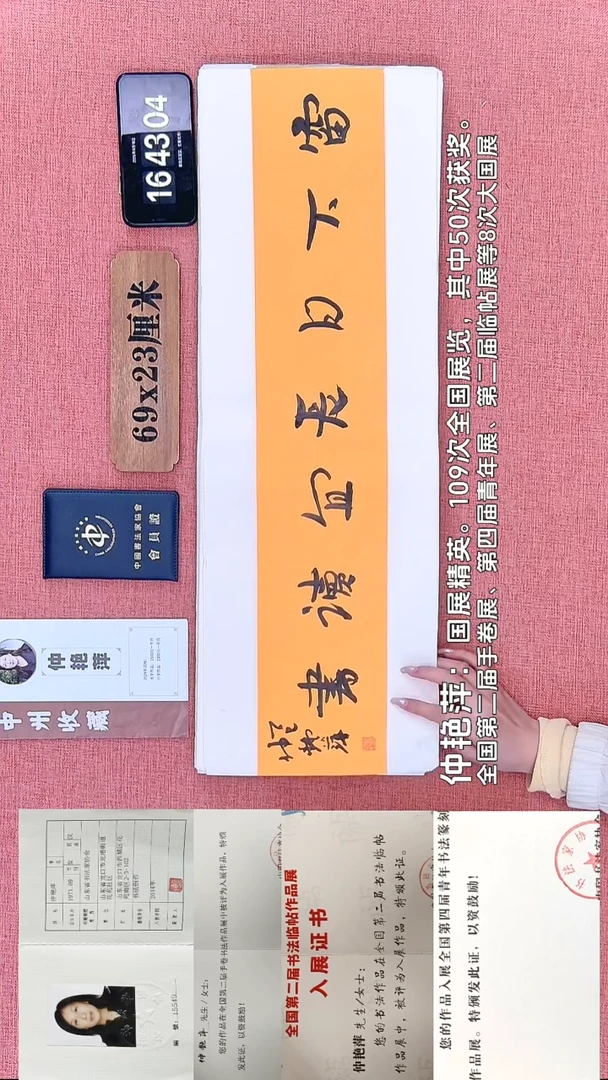 仲艳萍：国展精英。109次全国展览，其中50次获奖。
全国第二届手卷展、第四届青年展、第二届临帖展等8次大国展
窗下日長宜讀書
164304
69x23厘米
中國書法家協會
會員證
仲艳萍
中州收藏
全国第二届书法临帖作品展
入展证书
仲艳萍 先生/女士：
您的书法作品在全国第二届书法临帖
作品展中，被评为入展作品，特颁此证。
仲艳萍 先生/女士：
您的作品在全国第二届手卷书法作品展中被评为入展作品，特颁
发此证，以资鼓励！
您的作品入展全国第四届青年书法篆刻
作品展。特颁发此证，以资鼓励！